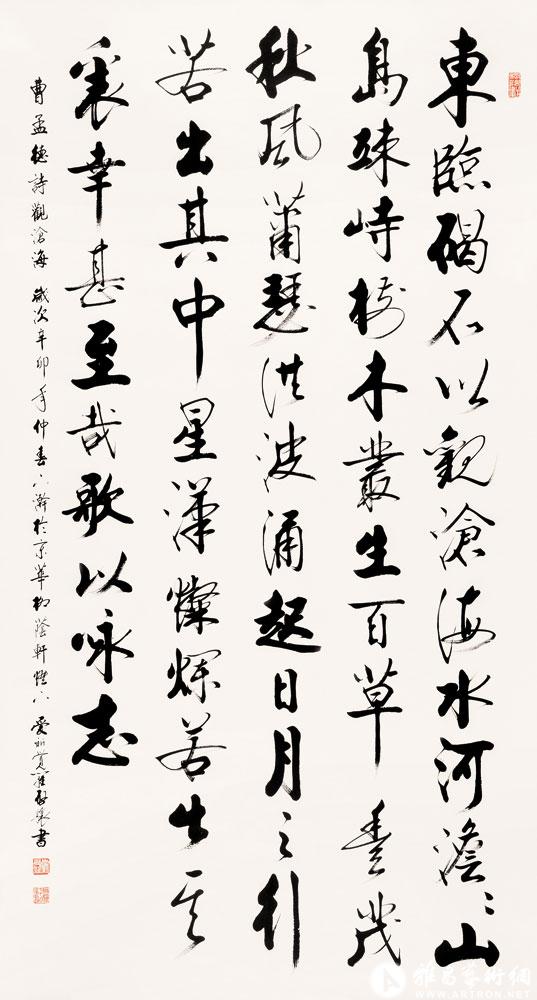 東臨碣石以觀滄海水河澹〻山
島竦峙樹木叢生百草豐茂
秋風蕭瑟洪波涌起日月之行
若出其中星漢燦爛若出其
裏幸甚至哉歌以咏志
曹孟德詩觀滄海 歲次辛卯年仲春於京華柳蔭軒燈下 愛新覺羅書
雅昌藝術網
WWW.ARTRON.NET